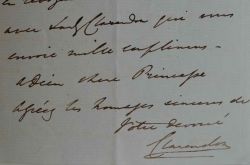 avec Lady Clarendon qui vous
envoie mille complimens –
adieu chere Princesse
Agréez les homages sinceres de
Votre devoué
Clarendon